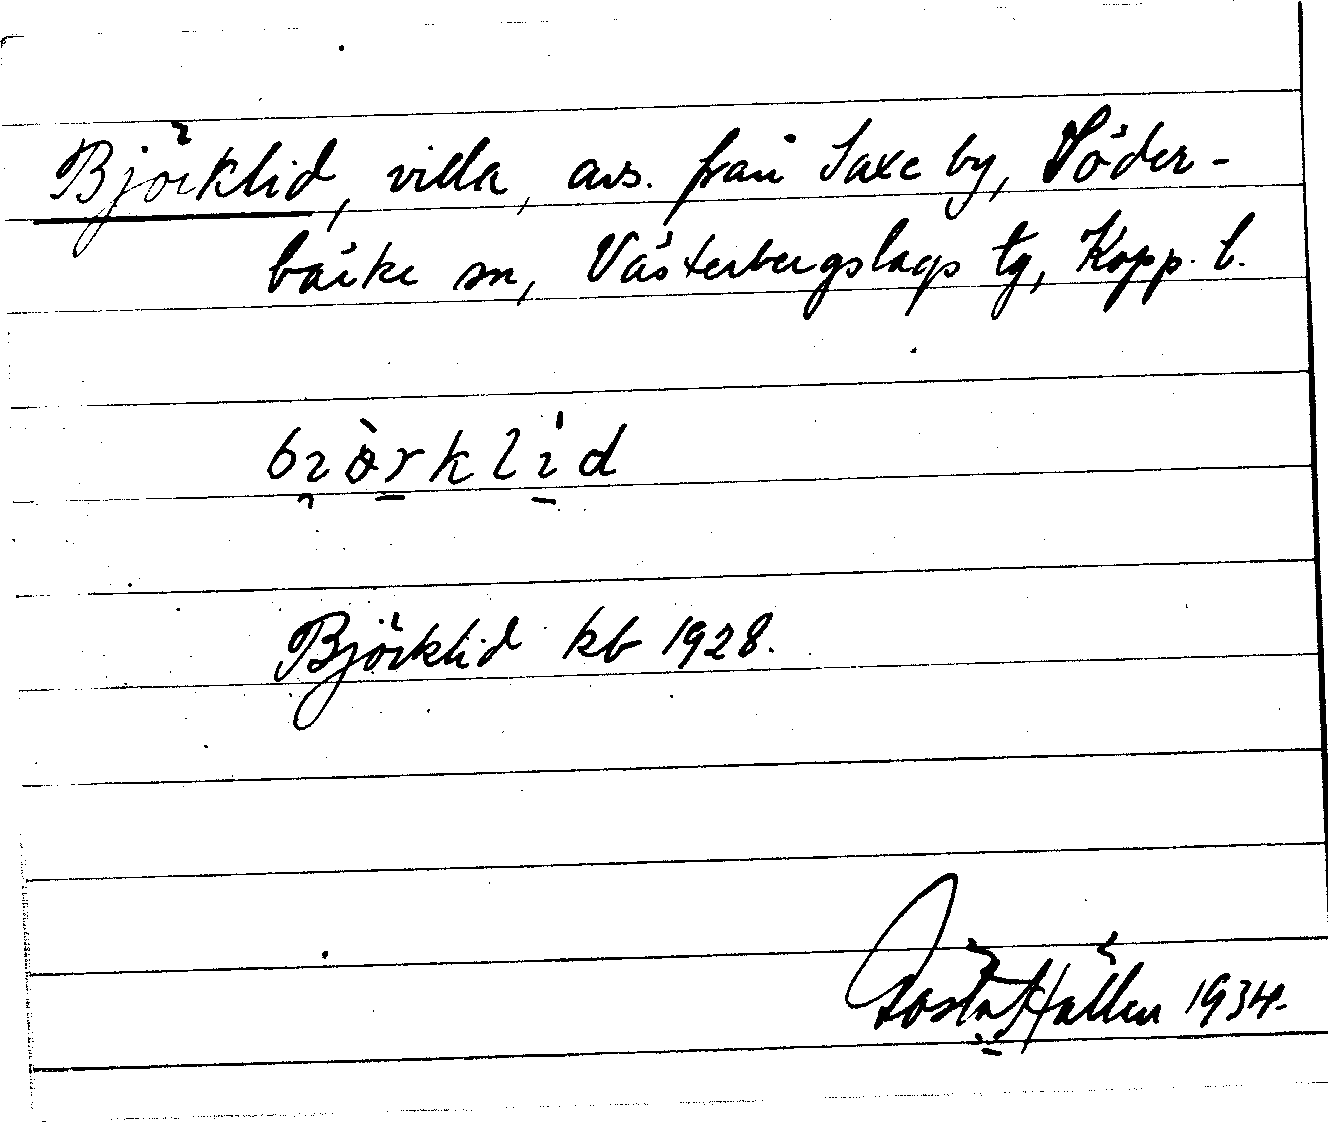 Björklid, villa, avs. från Saxe by, Söder-
bärke sn, Västerbergslags tg, Kopp. l.
bi̯ö̀rklíd
Björklid kb 1928.
Gösta Hállen 1934.